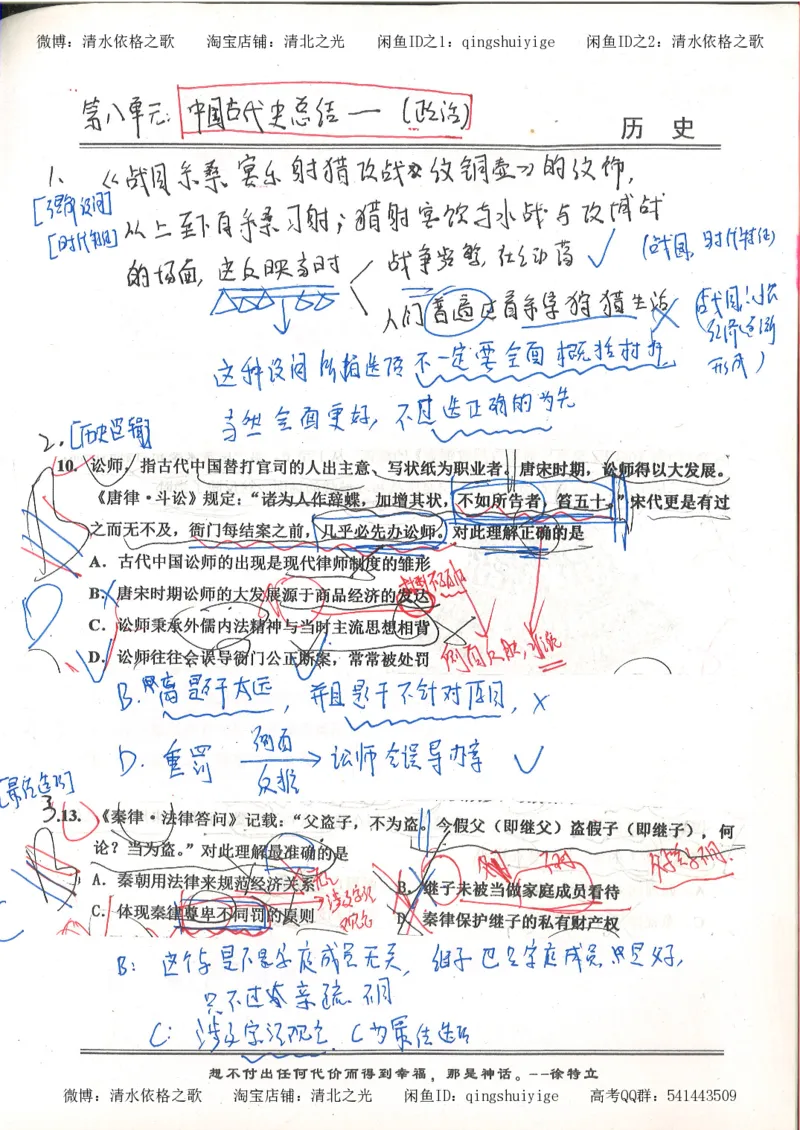 微博：清水依格之歌 淘宝店铺：清北之光 闲鱼ID之1：qingshuiyige 闲鱼ID之2：清水依格之歌
第八单元：中国古代史总结一（政治）
历 史
1. 《战国采桑宴乐射猎攻战纹铜壶》的纹饰，
[强解设问]
从上至下有采桑习射；猎射宴饮与水战与攻城战
[时代特征]
的场面，这反映当时
战争频繁，社会动荡 ✓
(战国，时代特征)
人们普遍过着采桑狩猎生活 ×
这种设问所指选项不一定要全面概括材料
当然全面更好，不过选正确的为先
2. [历史逻辑]
10. 讼师，指古代中国替打官司的人出主意、写状纸为职业者。唐宋时期，讼师得以大发展。
《唐律·斗讼》规定：“诸为人作辞牒，加增其状，不如所告者，笞五十。”宋代更是有过
之而无不及，衙门每结案之前，几乎必先办讼师。对此理解正确的是
A．古代中国讼师的出现是现代律师制度的雏形
B．唐宋时期讼师的大发展源于商品经济的发达
C．讼师秉承外儒内法精神与当时主流思想相背
D．讼师往往会误导衙门公正断案，常常被处罚
B. 离题干太远，并且题干不针对原因，×
D. 重罚 侧面反推 → 讼师会误导办案 ✓
[最佳选项]
3.13. 《秦律·法律答问》记载：“父盗子，不为盗。今假父（即继父）盗假子（即继子），何
论？当为盗。”对此理解最准确的是
A．秦朝用法律来规范经济关系
B．继子未被当做家庭成员看待
C．体现秦律尊卑不同罚的原则
D．秦律保护继子的私有财产权
B: 这个与是不是家庭成员无关，继子也是家庭成员
只不过亲疏不同
C: 涉及宗法观念，C为最佳选项
想不付出任何代价而得到幸福，那是神话。--徐特立
微博：清水依格之歌 淘宝店铺：清北之光 闲鱼ID：qingshuiyige 高考QQ群：541443509